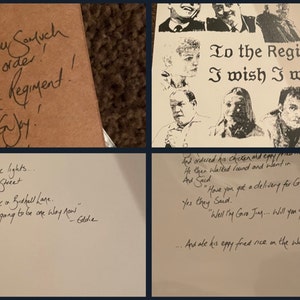 So much
order!
Regiment!
Enjoy!
To the Regi
I wish I w
lights...
Street
in Lane.
going to be one way now"
- Eddie
And ordered his chicken and eggy fried
He then walked round and went in
And Said
"Have you got a delivery for
Yes they Said.
"Well I'm Will you
...And ate his eggy fried rice on the